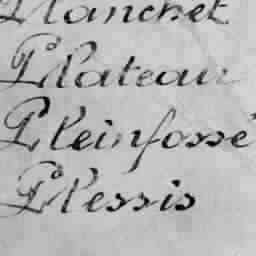 Planchet
Plateau
Pleinfossé
Plessis